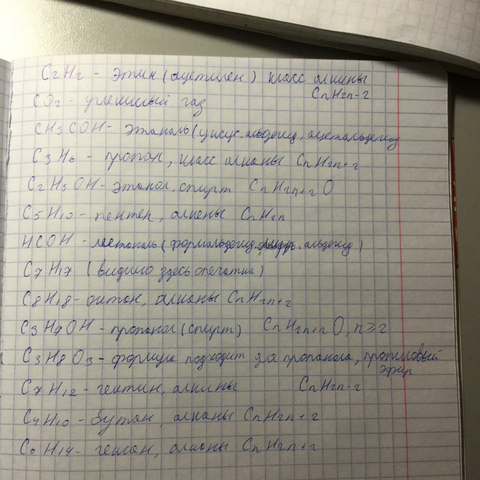 C2H2 - этин (ацетилен) класс алкины CnH2n-2
CO2 - углекислый газ
CH3COH - этаналь (уксус. альдегид, ацетальдегид
C3H6 - пропан, класс алканы CnH2n+2
C2H5OH - этанол, спирт CnH2n+2O
C5H10 - пентен, алкены CnH2n
HCOH - метаналь (формальдегид, альдегид)
C7H17 (видимо здесь опечатка)
C8H18 - октан, алканы CnH2n+2
C3H7OH - пропанол (спирт) CnH2n+2O, n≥2
C3H8O3 - формула подходит для пропанола, пропиловый эфир
C7H12 - гептин, алкины CnH2n-2
C4H10 - бутан, алканы CnH2n+2
C6H14 - гексан, алканы CnH2n+2